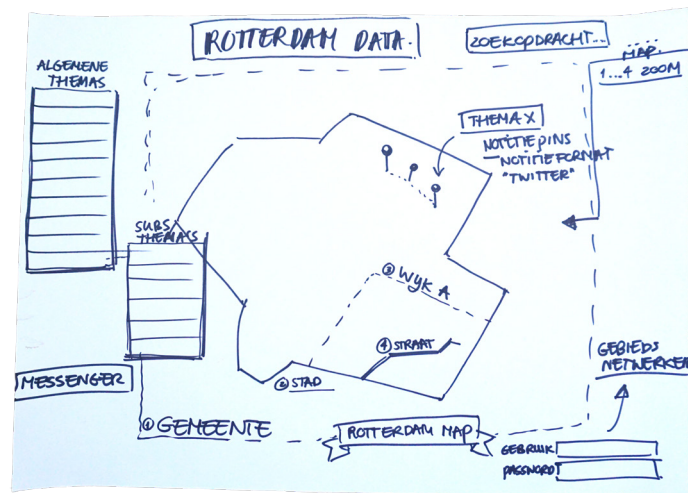 ROTTERDAM DATA.
ZOEKOPDRACHT...
MAP.
1...4 ZOOM
ALGEMENE
THEMAS
THEMA X
NOTITIEPINS
NOTITIEFORMAT
"TWITTER"
SUBS
THEMA'S
③ WYK A
④ STRAAT
② STAD
GEBIEDS
NETWERKEN
MESSENGER
① GEMEENTE
ROTTERDAM MAP
GEBRUIK
PASSNORD